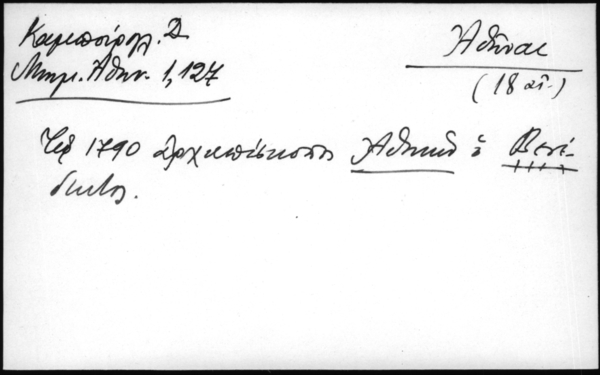 Καμπούρογλ. Δ.
Μνημ. Αθην. 1,127
Ἀθῆναι
(18 αἰ.)
1790 ἀρχιεπίσκοπος Ἀθηνῶν ὁ Βενέ-
δικτος.